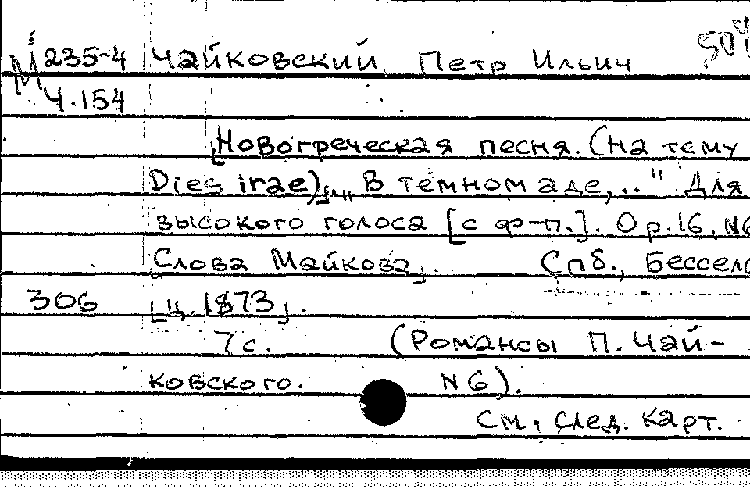 М 235-4 Чайковский Петр Ильич
Ч.154
[Новогреческая песня. (На тему
Dies irae)]. „В темном аде,.." Для
высокого голоса [с ф-п.]. Ор.16, №6
Слова Майкова]. Спб., Бессель
306 [ц. 1873].
7 с. (Романсы П. Чай-
ковского. №6).
См. след. карт.